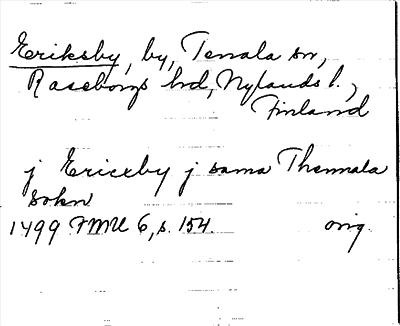 Eriksby, by, Tenala sn,
Raseborgs hd, Nylands l.,
Finland
j Ericxby j sama Thennala
sokn
1499 FMU 6, s. 154. orig.